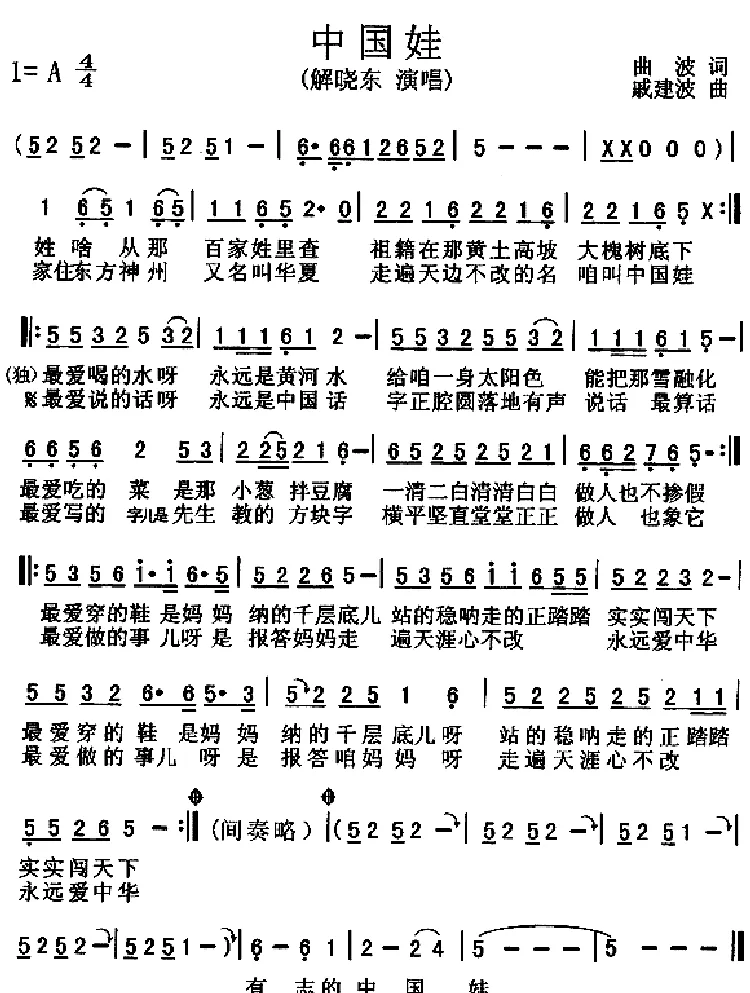 中国娃
1= A 4/4
(解晓东 演唱)
曲 波 词
戚建波 曲
( 5 2 5 2 - | 5 2 5 1 - | 6· 6 6 1 2 6 5 2 | 5 - - - | X X 0 0 0 ) |
1 6 5 1 6 5 | 1 1 6 5 2· 0 | 2 2 1 6 2 2 1 6 | 2 2 1 6 5 X :||
姓啥 从那 百家姓里查 祖籍在那黄土高坡 大槐树底下
家住东方神州 又名叫华夏 走遍天边不改的名 咱叫中国娃
||: 5 5 3 2 5 3 2 | 1 1 1 6 1 2 - | 5 5 3 2 5 5 3 2 | 1 1 1 6 1 5 - |
(独) 最爱喝的水呀 永远是黄河水 给咱一身太阳色 能把那雪融化
※最爱说的话呀 永远是中国话 字正腔圆落地有声 说话 最算话
6 6 5 6 2 5 3 | 2 2 5 2 1 6 - | 6 5 2 5 2 5 2 1 | 6 6 2 7 6 5 · :||
最爱吃的 菜 是那 小葱 拌豆腐 一清二白清清白白 做人也不掺假
最爱写的 字儿是先生 教的 方块字 横平坚直堂堂正正 做人 也象它
||: 5 3 5 6 i· i 6· 5 | 5 2 2 6 5 - | 5 3 5 6 i i 6 5 5 | 5 2 2 3 2 - |
最爱穿的鞋 是妈妈 纳的千层底儿 站的稳呐走的正踏踏 实实闯天下
最爱做的事 儿呀是 报答妈妈走 遍天涯心不改 永远爱中华
5 5 3 2 6· 6 5· 3 | 5 2 2 5 1 6 | 5 2 2 5 2 5 2 1 1 |
最爱穿的鞋 是妈妈 纳的千层底儿呀 站的稳呐走的正踏踏
最爱做的事儿 呀是 报答咱妈妈 呀 走遍天涯心不改
5 5 2 6 5 - :|| (间奏略) | ( 5 2 5 2 - | 5 2 5 2 - | 5 2 5 1 - |
实实闯天下
永远爱中华
5 2 5 2 - | 5 2 5 1 - ) | 6 - 6 1 | 2 - 2 4 | 5 - - - | 5 - - - ||
有 志的 中 国 娃